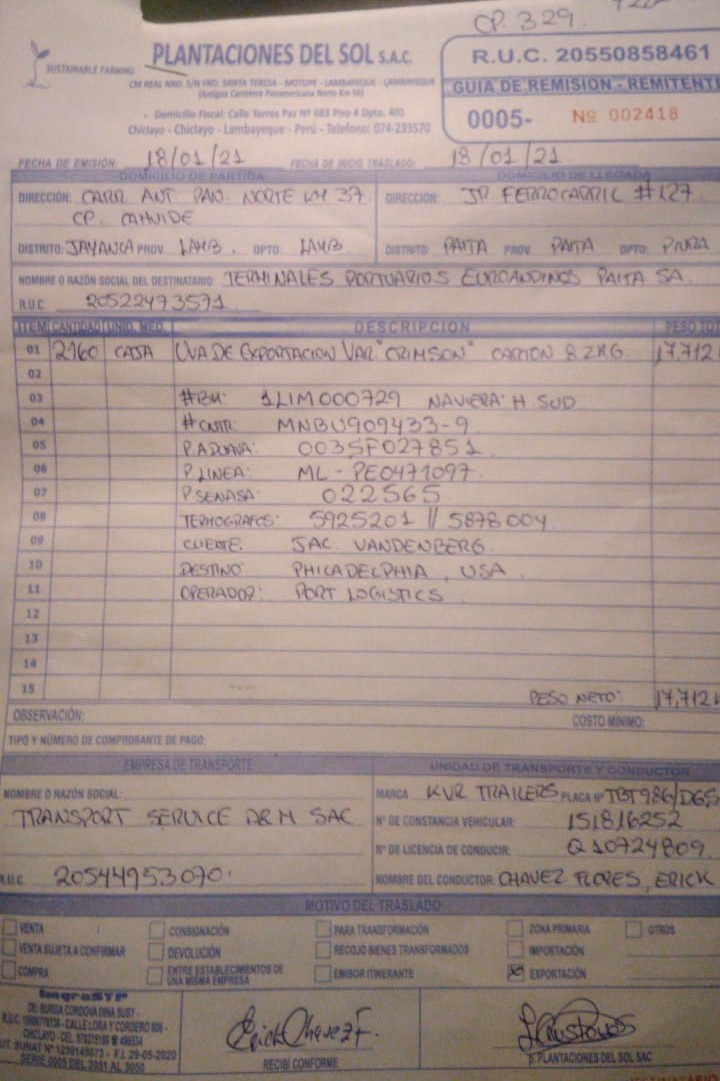 CP. 329.
SUSTAINABLE FARMING
PLANTACIONES DEL SOL S.A.C.
CM REAL NRO. S/N FND. SANTA TERESA - MOTUPE - LAMBAYEQUE - LAMBAYEQUE
(Antigua Carretera Panamericana Norte Km 50)
Domicilio Fiscal: Calle Torres Paz Nº 683 Piso 4 Dpto. 401
Chiclayo - Chiclayo - Lambayeque - Perú - Telefono: 074-233570
R.U.C. 20550858461
GUIA DE REMISION - REMITENTE
0005- Nº 002418
FECHA DE EMISIÓN: 18/01/21 FECHA DE INICIO TRASLADO: 18/01/21
DOMICILIO DE PARTIDA DOMICILIO DE LLEGADA
DIRECCIÓN: CARR ANT PAN. NORTE KM 37
CP. CAHUIDE
DISTRITO: JAYANCA PROV. LAMB. DPTO: LAMB
DIRECCIÓN: JR FERROCARRIL #127
DISTRITO: PAITA PROV. PAITA DPTO: PIURA
NOMBRE O RAZÓN SOCIAL DEL DESTINATARIO: TERMINALES PORTUARIOS EUROANDINOS PAITA SA.
R.U.C. 20522473571
ITEM CANTIDAD UNID. MED. DESCRIPCION PESO TO
01 2160 CAJA UVA DE EXPORTACION VAR. "CRIMSON" CARTON 8.2KG. 17,712
02
03 #BK: 1LIM000729 NAVIERA: H. SUD
04 #CNTR: MNBU909433-9
05 P. ADUANA: 0035F027851
06 P LINEA: ML - PE0471097.
07 P SENASA: 022565
08 TERMOGRAFOS: 5925201 // 5878004
09 CLIENTE. JAC. VANDENBERG.
10 DESTINO: PHILADELPHIA, USA.
11 OPERADOR: PORT LOGISTICS
12
13
14
15 PESO NETO: 17,712
OBSERVACIÓN: COSTO MÍNIMO:
TIPO Y NÚMERO DE COMPROBANTE DE PAGO:
EMPRESA DE TRANSPORTE
NOMBRE O RAZÓN SOCIAL:
TRANSPORT SERVICE D&M SAC
R.U.C. 20544953070.
UNIDAD DE TRANSPORTE Y CONDUCTOR
MARCA KVR TRAILERS PLACA Nº TBT986/D6S
Nº DE CONSTANCIA VEHICULAR: 151816252
Nº DE LICENCIA DE CONDUCIR: Q10724809.
NOMBRE DEL CONDUCTOR: CHAVEZ FLORES, ERICK
MOTIVO DEL TRASLADO
VENTA CONSIGNACIÓN PARA TRANSFORMACIÓN ZONA PRIMARIA OTROS
VENTA SUJETA A CONFIRMAR DEVOLUCIÓN RECOJO BIENES TRANSFORMADOS IMPORTACIÓN
COMPRA ENTRE ESTABLECIMIENTOS DE UNA MISMA EMPRESA EMISOR ITINERANTE EXPORTACIÓN
ImgraSYP
DE: BURGA CORDOVA DINA SUSY -
CALLE LORA Y CORDERO
AUT. SUNAT Nº 1239145073 - F.I. 29-05-2020
SERIE 0005 DEL 2051 AL 3050
Erick Chavez F.
RECIBÍ CONFORME
P. PLANTACIONES DEL SOL SAC
DESTINATARIO